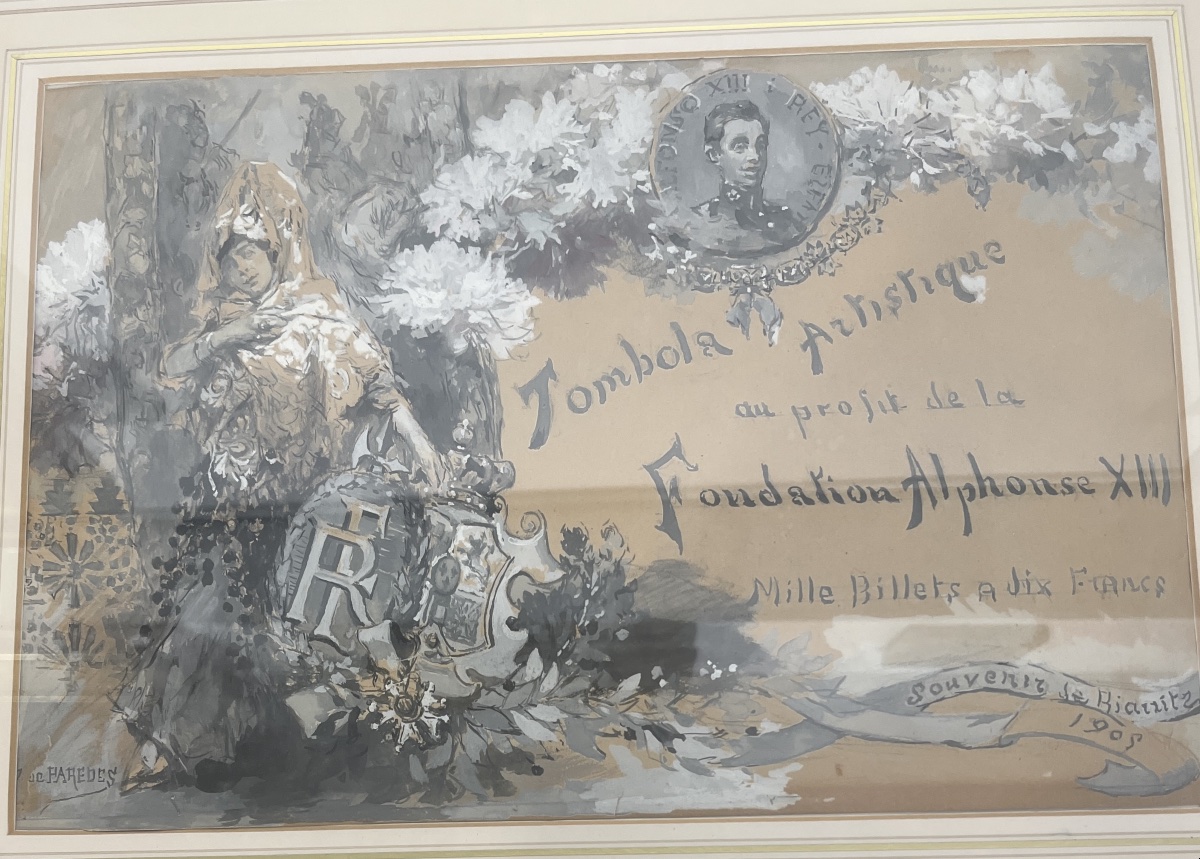 ALFONSO XIII REY
Tombola Artistique
au profit de la
Fondation Alphonse XIII
Mille Billets a dix Francs
Souvenir de Biarritz
1905
RF
de PAREDES